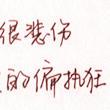 很悲伤
的偏执狂